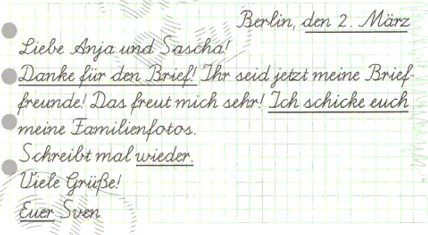 Berlin, den 2. März
Liebe Anja und Sascha!
Danke für den Brief! Ihr seid jetzt meine Brief-
freunde! Das freut mich sehr! Ich schicke euch
meine Familienfotos.
Schreibt mal wieder.
Viele Grüße!
Euer Sven